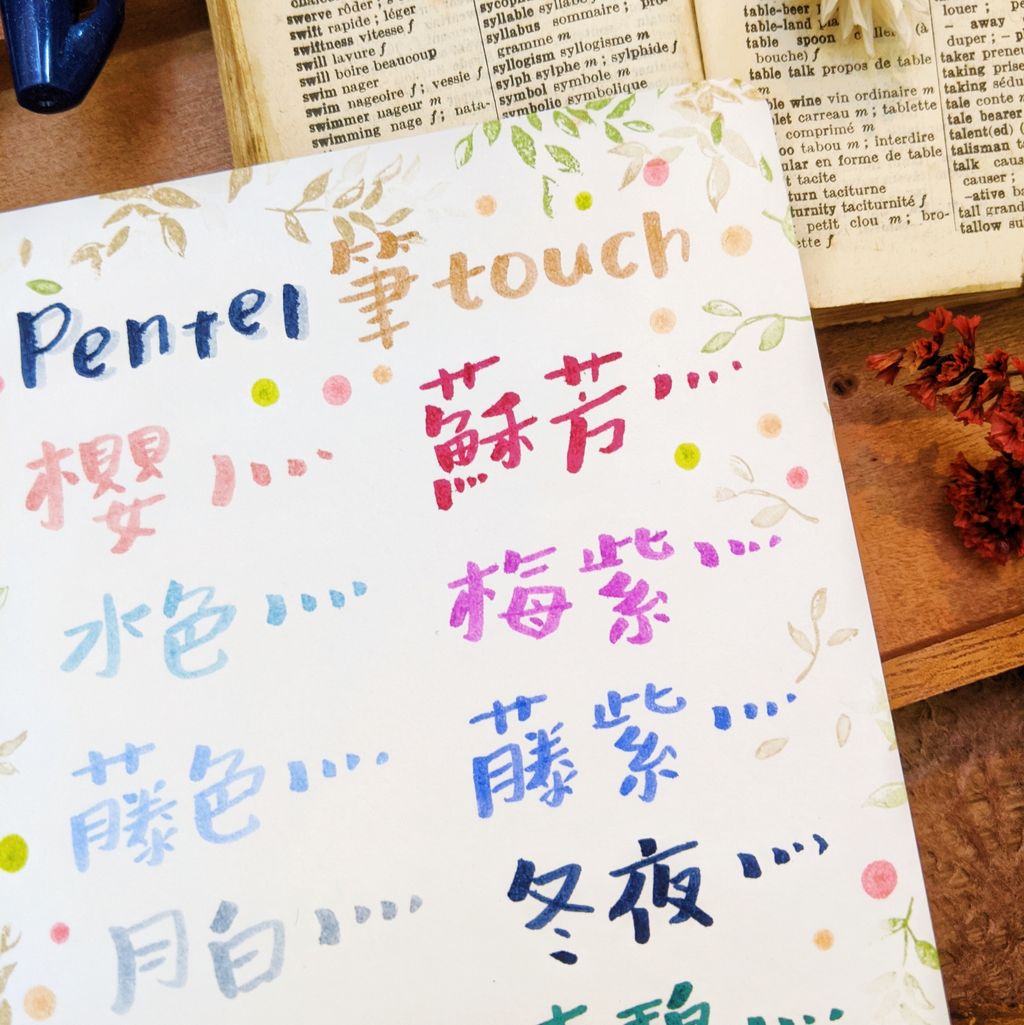 swerve rôder;
swift rapide; léger
swiftness vitesse f
swill lavure f
swill boire beaucoup
swim nager
swim nageoire f; vessie f
swimmer nageur m
swimming nage f; nata-
syllable
syllabus sommaire; pro-
gramme m
syllogism syllogisme m
sylph sylphe m; sylphide f
symbol symbole m
symbolic symbolique
table-beer
table-land
table spoon (à
bouche) f
table talk propos de table
wine vin ordinaire m
carreau m; tablette
comprimé m
tabou m; interdire
en forme de table
tacite
taciturne
taciturnité f
petit clou m; bro-
jouer; pe
- away
duper; - p
taker preneu
taking prise
taking sédu
tale conte m
tale bearer
talent(ed)
talisman
talk caus
causer;
-ative ba
tall grand
tallow su
Pentel 筆 touch
櫻
蘇芳
水色
梅紫
藤色
藤紫
月白
冬夜
碧